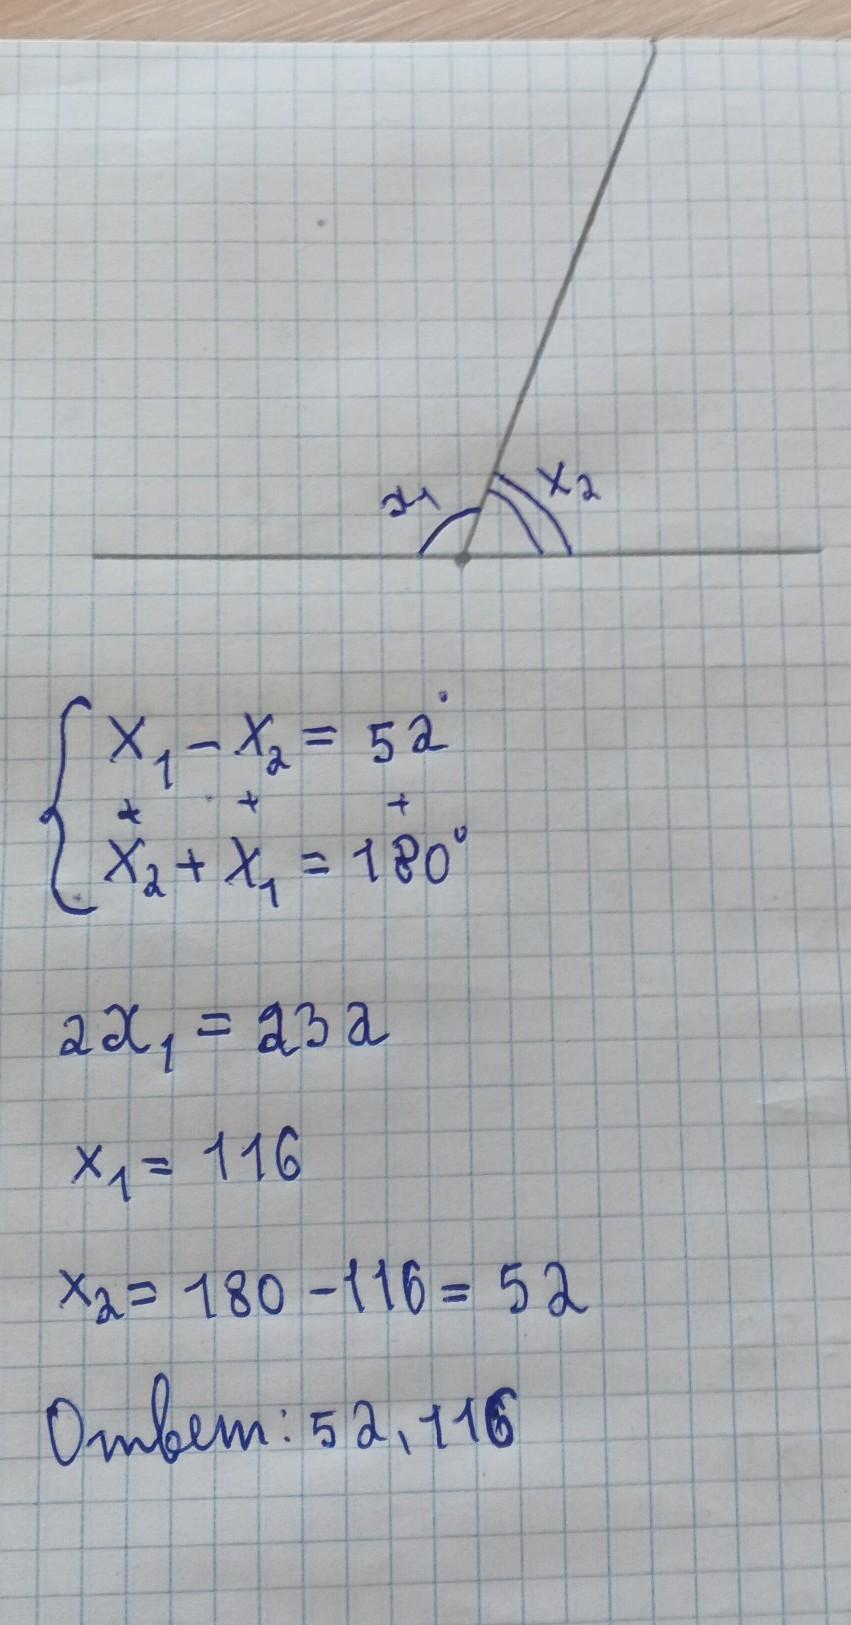 x₁ x₂
x₁ - x₂ = 52°
+ + +
x₂ + x₁ = 180°
2x₁ = 232
x₁ = 116
x₂ = 180 - 116 = 52
Ответ: 52, 116